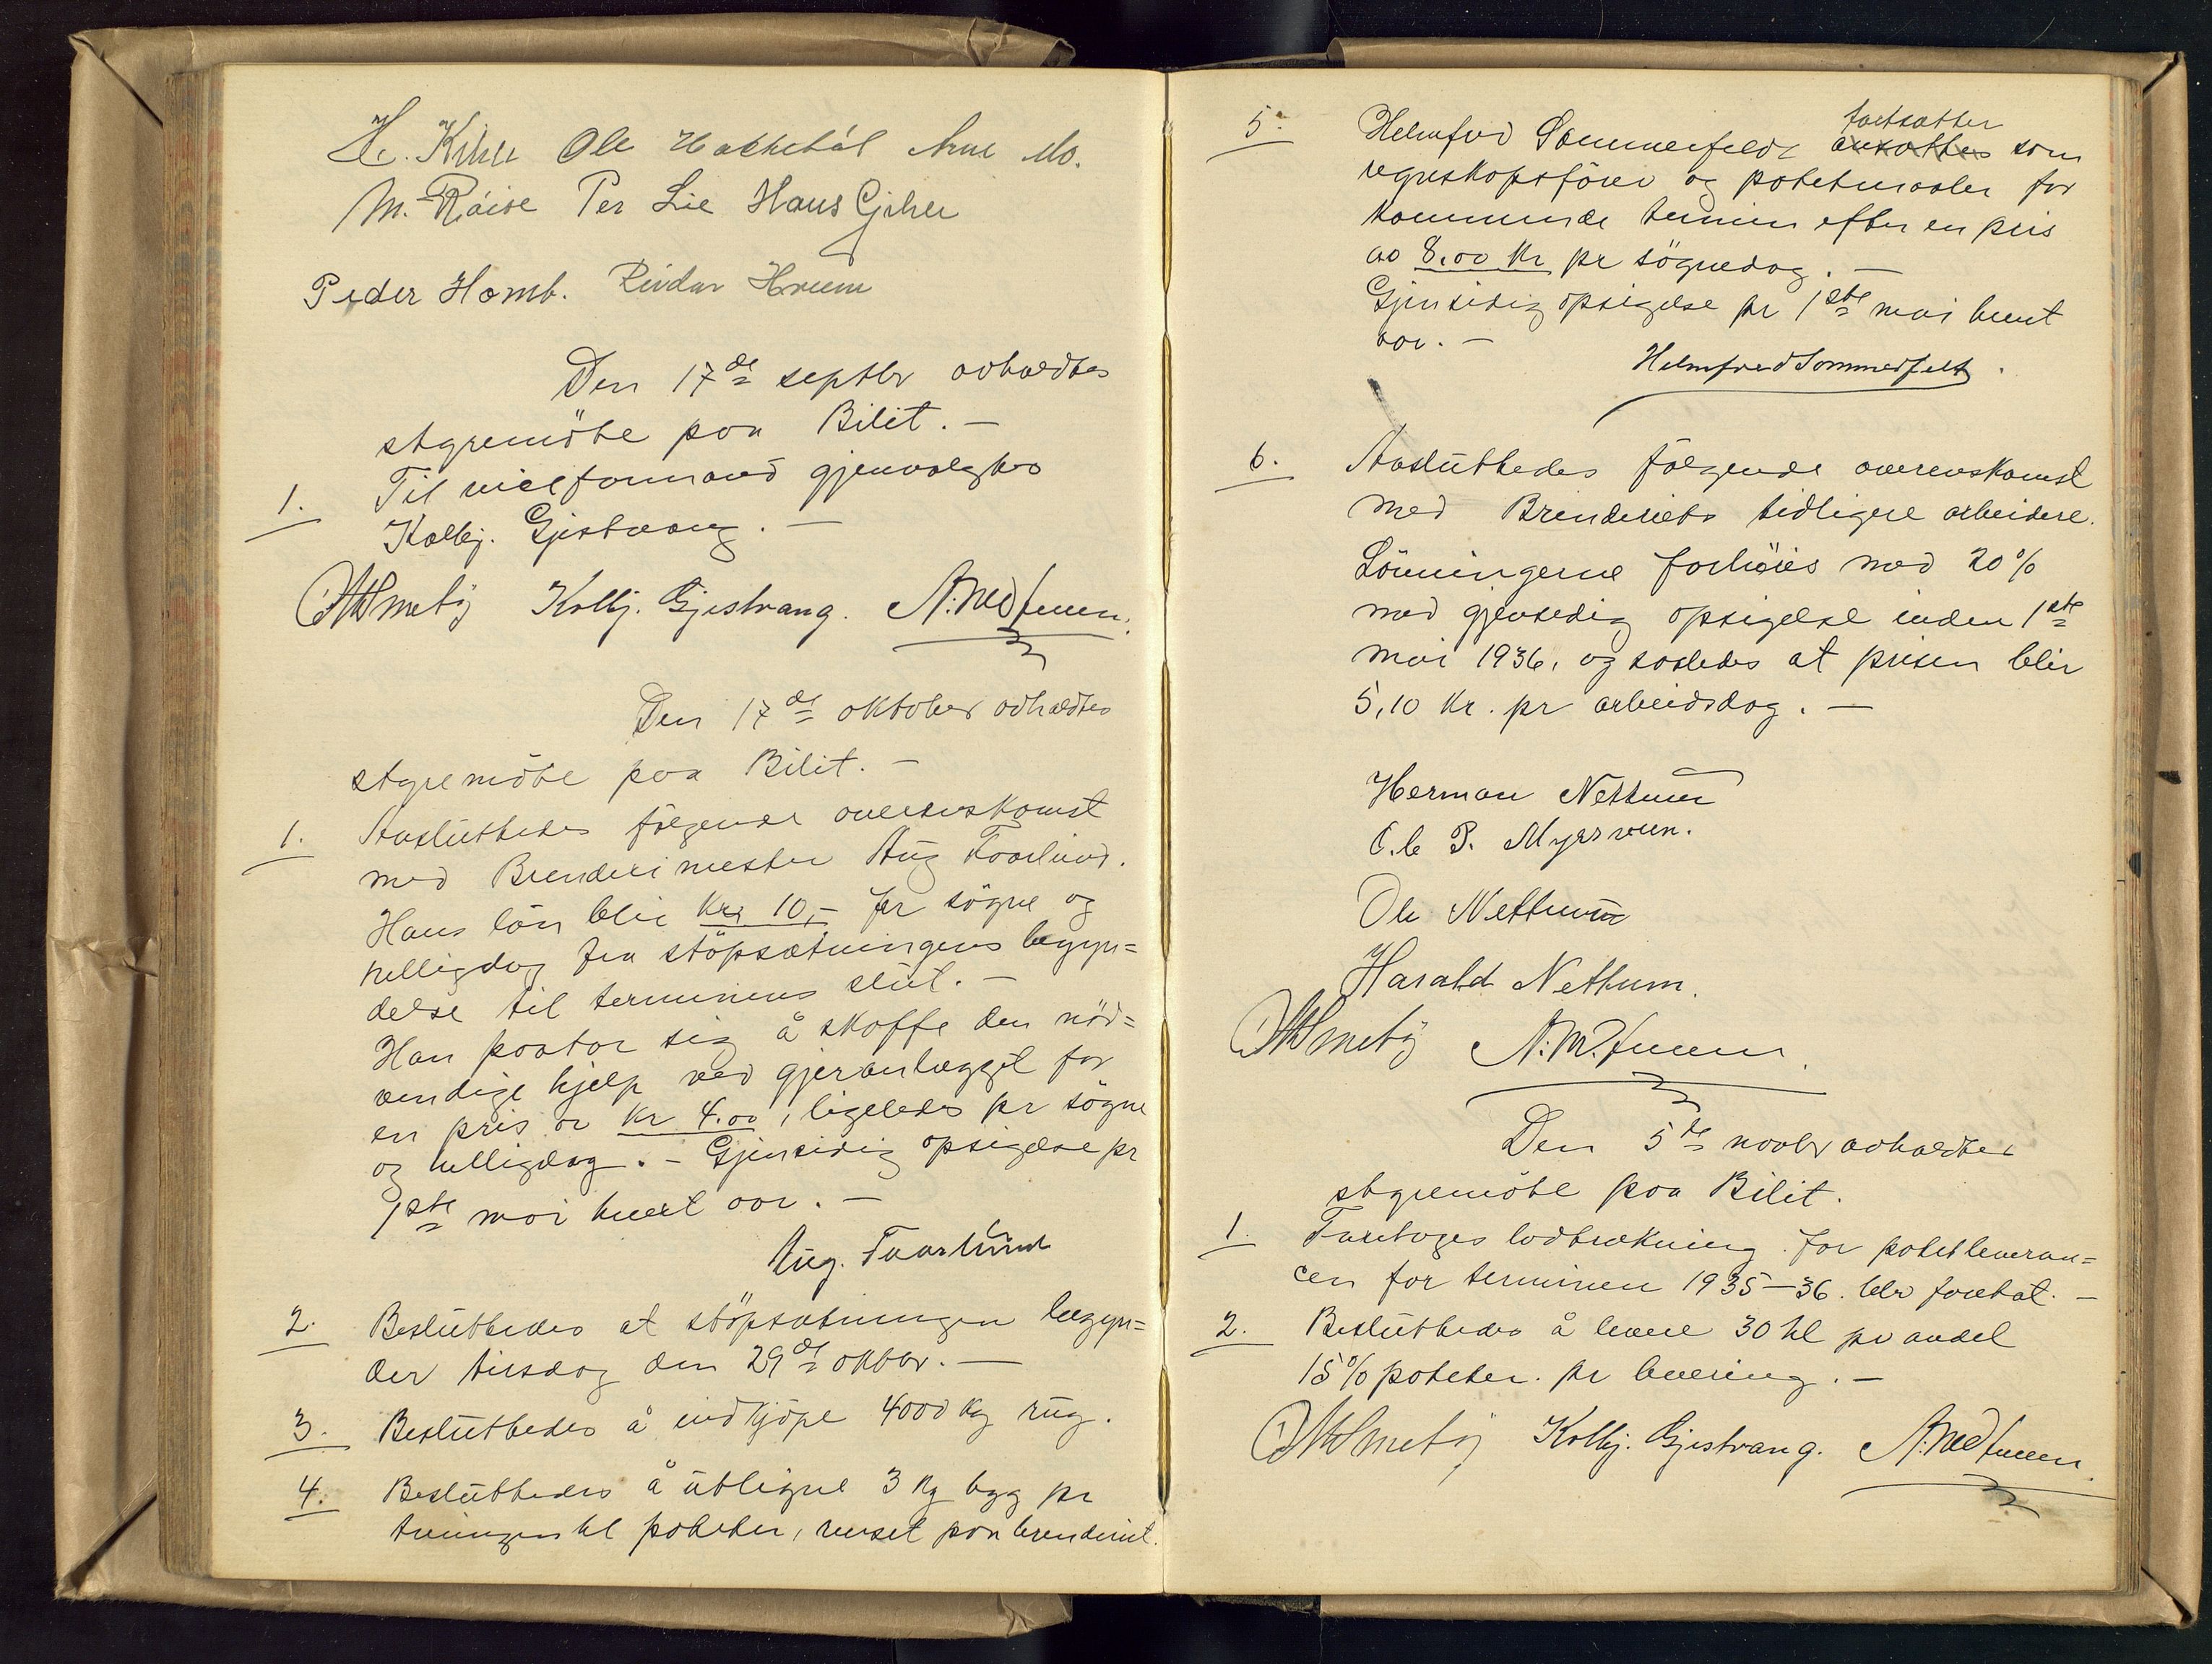 H. Kihle Ole Hakkebål Arne Mo.
M. Raise Per Lie Hans Gihle
Peder Homb. Reidar Hveem
Den 17de septbr avholdtes
styremöte paa Bilit. —
1. Til viceformand gjenvalgtes
Kolbj. Gjestvang. —
Kolbj. Gjestvang.
Den 17de oktober avholdtes
styremöte paa Bilit. —
1. Avsluttedes fölgende overenskomst
med Brenderimester Aug Faarlund.
Hans lön blir Kr 10,- pr sögne og
helligdag fra stöpsætningens begyn=
delse til terminens slut. —
Han paatar sig å skaffe den nöd=
vendige hjelp ved gjeranlægget for
en pris av Kr 4.00, ligeledes pr sögne
og helligdag. – Gjensidig opsigelse pr
1ste mai hvert aar. —
Aug. Faarlund
2. Besluttedes at stöpsætningen begyn=
der tirsdag den 29de oktbr. —
3. Besluttedes å indkjöpe 4000 kg rug.
4. Besluttedes å utligne 3 kg byg pr
tvungen hl poteter, renset paa brenderiet.
5. Helmfred Sommerfeldt ansattes fortsætter som
regnskapsförer og potetmaaler for
kommende termin efter en pris
av 8.00 Kr pr sögnedag. —
Gjensidig opsigelse pr 1ste mai hvert
aar. —
Helmfred Sommerfelt.
6. Avsluttedes fölgende overenskomst
med Brenderiets tidligere arbeidere.
Lönningerne forhöies med 20%
med gjensedig opsigelse inden 1ste
mai 1936, og saaledes at prisen blir
5,10 Kr. pr arbeidsdag. —
Herman Nettum
Ole P. Myrsveen.
Ole Nettum
Harald Nettum.
Den 5te novbr avholdtes
styremöte paa Bilit.
1. Foretoges lodtrækning for potetleveran=
cen for terminen 1935–36. blev foretat. –
2. Besluttedes å levere 30 hl pr andel
15% poteter. pr levering. —
Kolbj. Gjestvang.